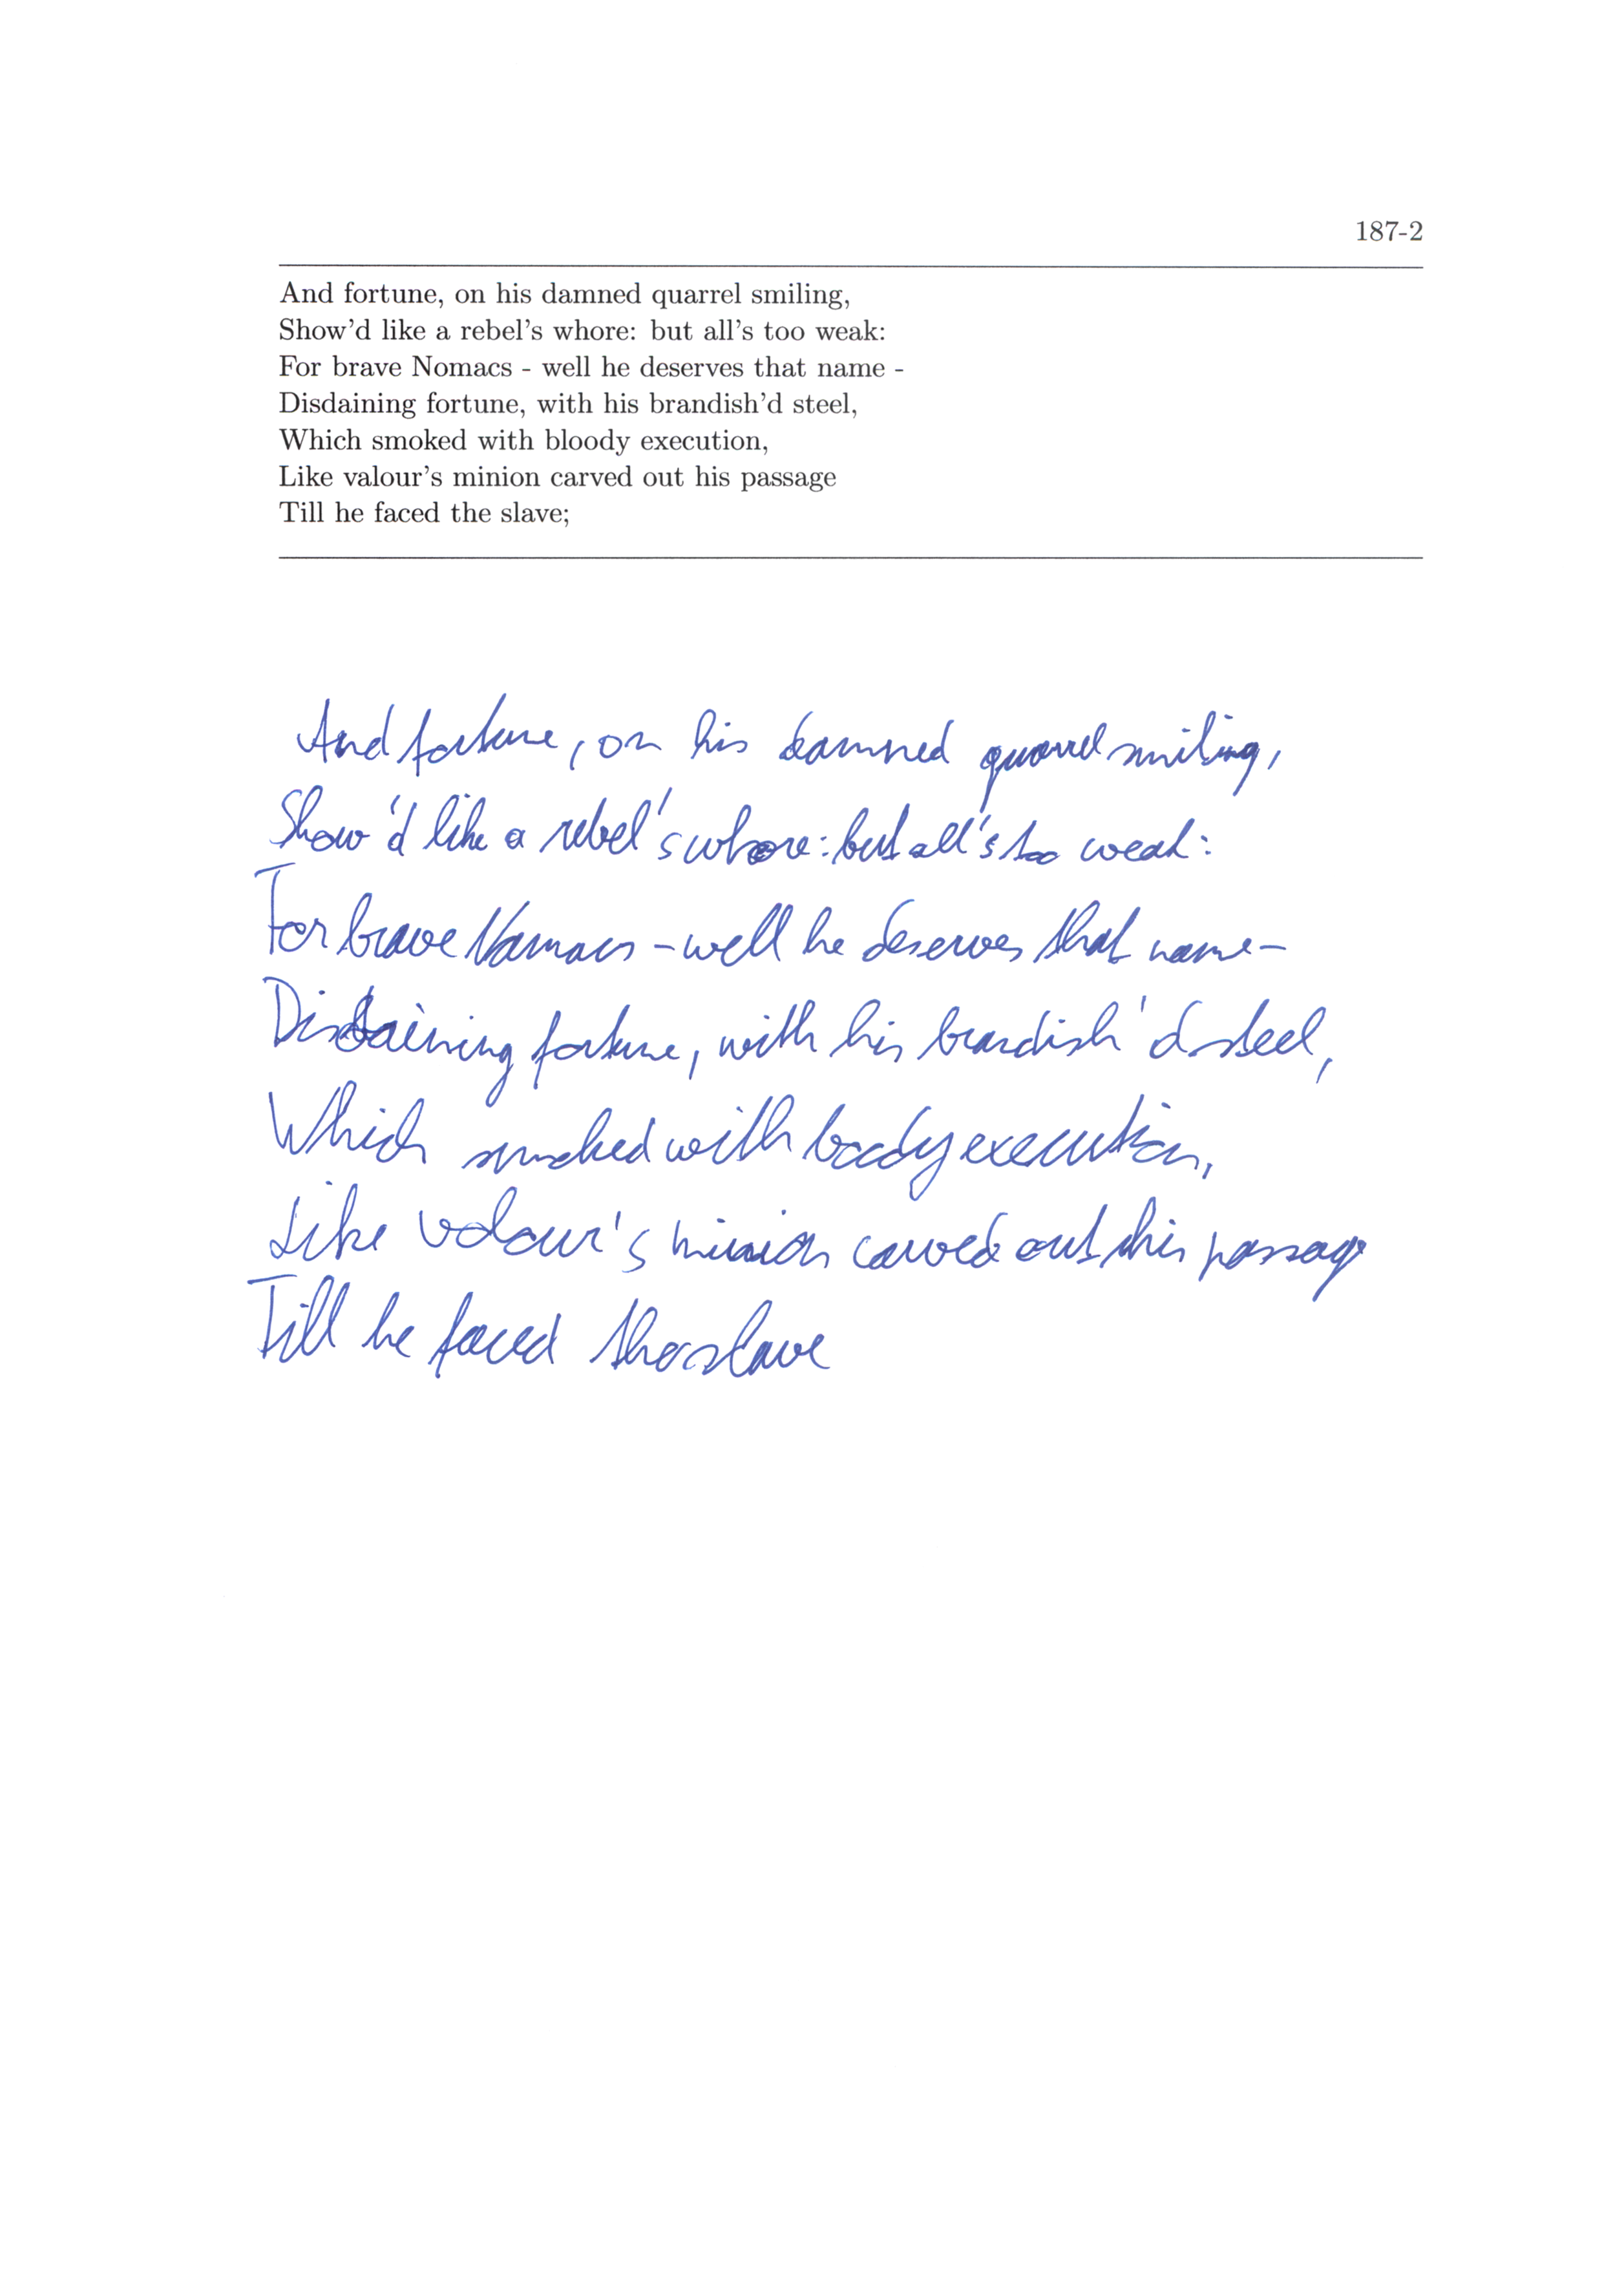 187-2
And fortune, on his damned quarrel smiling,
Show'd like a rebel's whore: but all's too weak:
For brave Nomacs - well he deserves that name -
Disdaining fortune, with his brandish'd steel,
Which smoked with bloody execution,
Like valour's minion carved out his passage
Till he faced the slave;
And fortune, on his damned quarrel smiling,
Show'd like a rebel's whore: but all's too weak:
For brave Nomacs - well he deserves that name -
Disdaining fortune, with his brandish'd steel,
Which smoked with boody execution,
Like valour's minion carved out his passage
Till he faced the slave